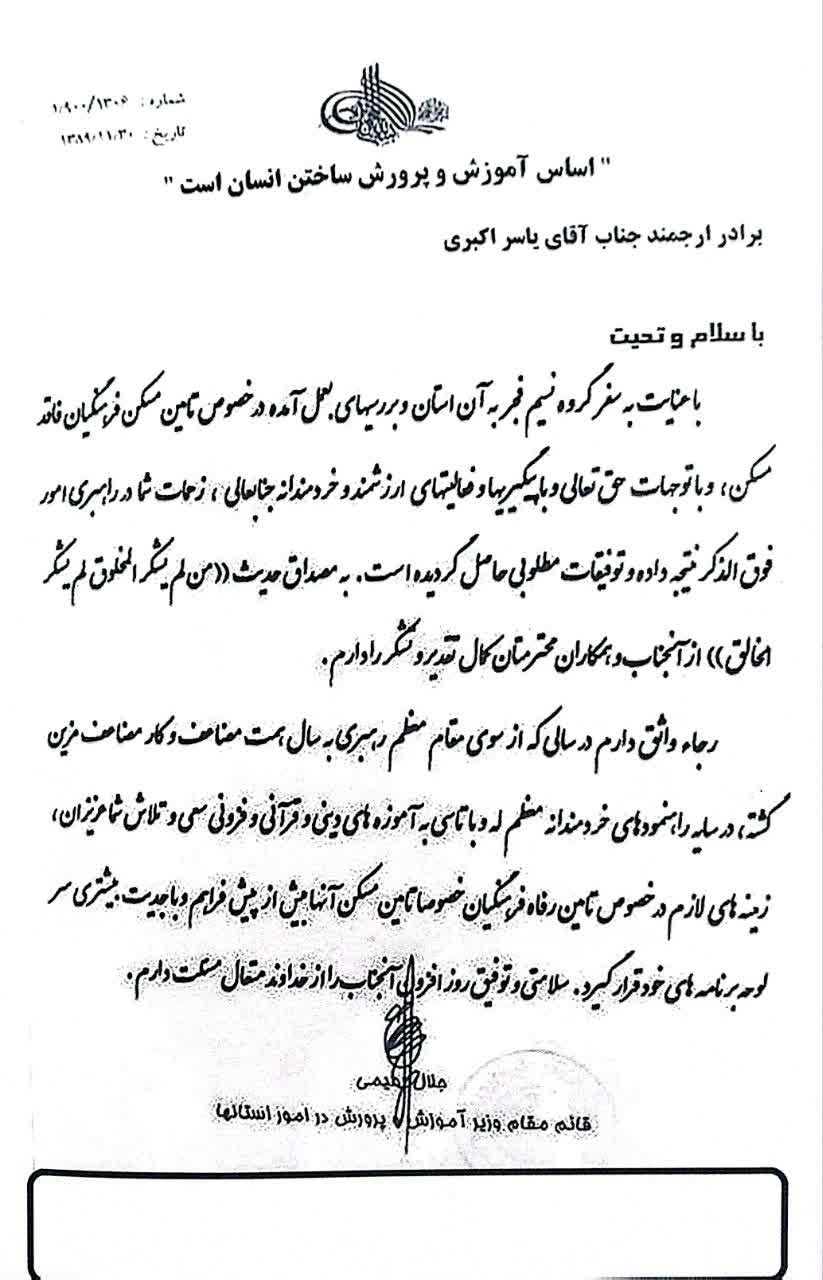 شماره: ۱/۹۰۰/۱۳۰۶
تاریخ: ۱۳۸۹/۱۱/۳۰
" اساس آموزش و پرورش ساختن انسان است "
برادر ارجمند جناب آقای یاسر اکبری
با سلام و تحیت
با عنایت به سفر گروه نسیم فجر به آن استان و بررسیهای بعمل آمده در خصوص تامین مسکن فرهنگیان فاقد
مسکن، و با توجهات حق تعالی و با پیگیریها و فعالیتهای ارزشمند و خردمندانه جنابعالی، زحمات شما در راهبری امور
فوق الذکر نتیجه داده و توفیقات مطلوبی حاصل گردیده است. به مصداق حدیث ((من لم یشکر المخلوق لم یشکر
الخالق)) از آنجناب و همکاران محترمتان کمال تقدیر و تشکر را دارم.
رجاء واثق دارم در سالی که از سوی مقام معظم رهبری به سال همت مضاعف و کار مضاعف مزین
گشته، در سایه راهنمودهای خردمندانه معظم له و با تاسی به آموزه های دینی و قرآنی و فزونی سعی و تلاش شما عزیزان،
زمینه های لازم در خصوص تامین رفاه فرهنگیان خصوصا تامین مسکن آنها بیش از پیش فراهم و با جدیت بیشتری سر
لوحه برنامه های خود قرار گیرد. سلامتی و توفیق روز افزون آنجناب را از خداوند متعال مسئلت دارم.
جلال
قائم مقام وزیر آموزش و پرورش در امور استانها